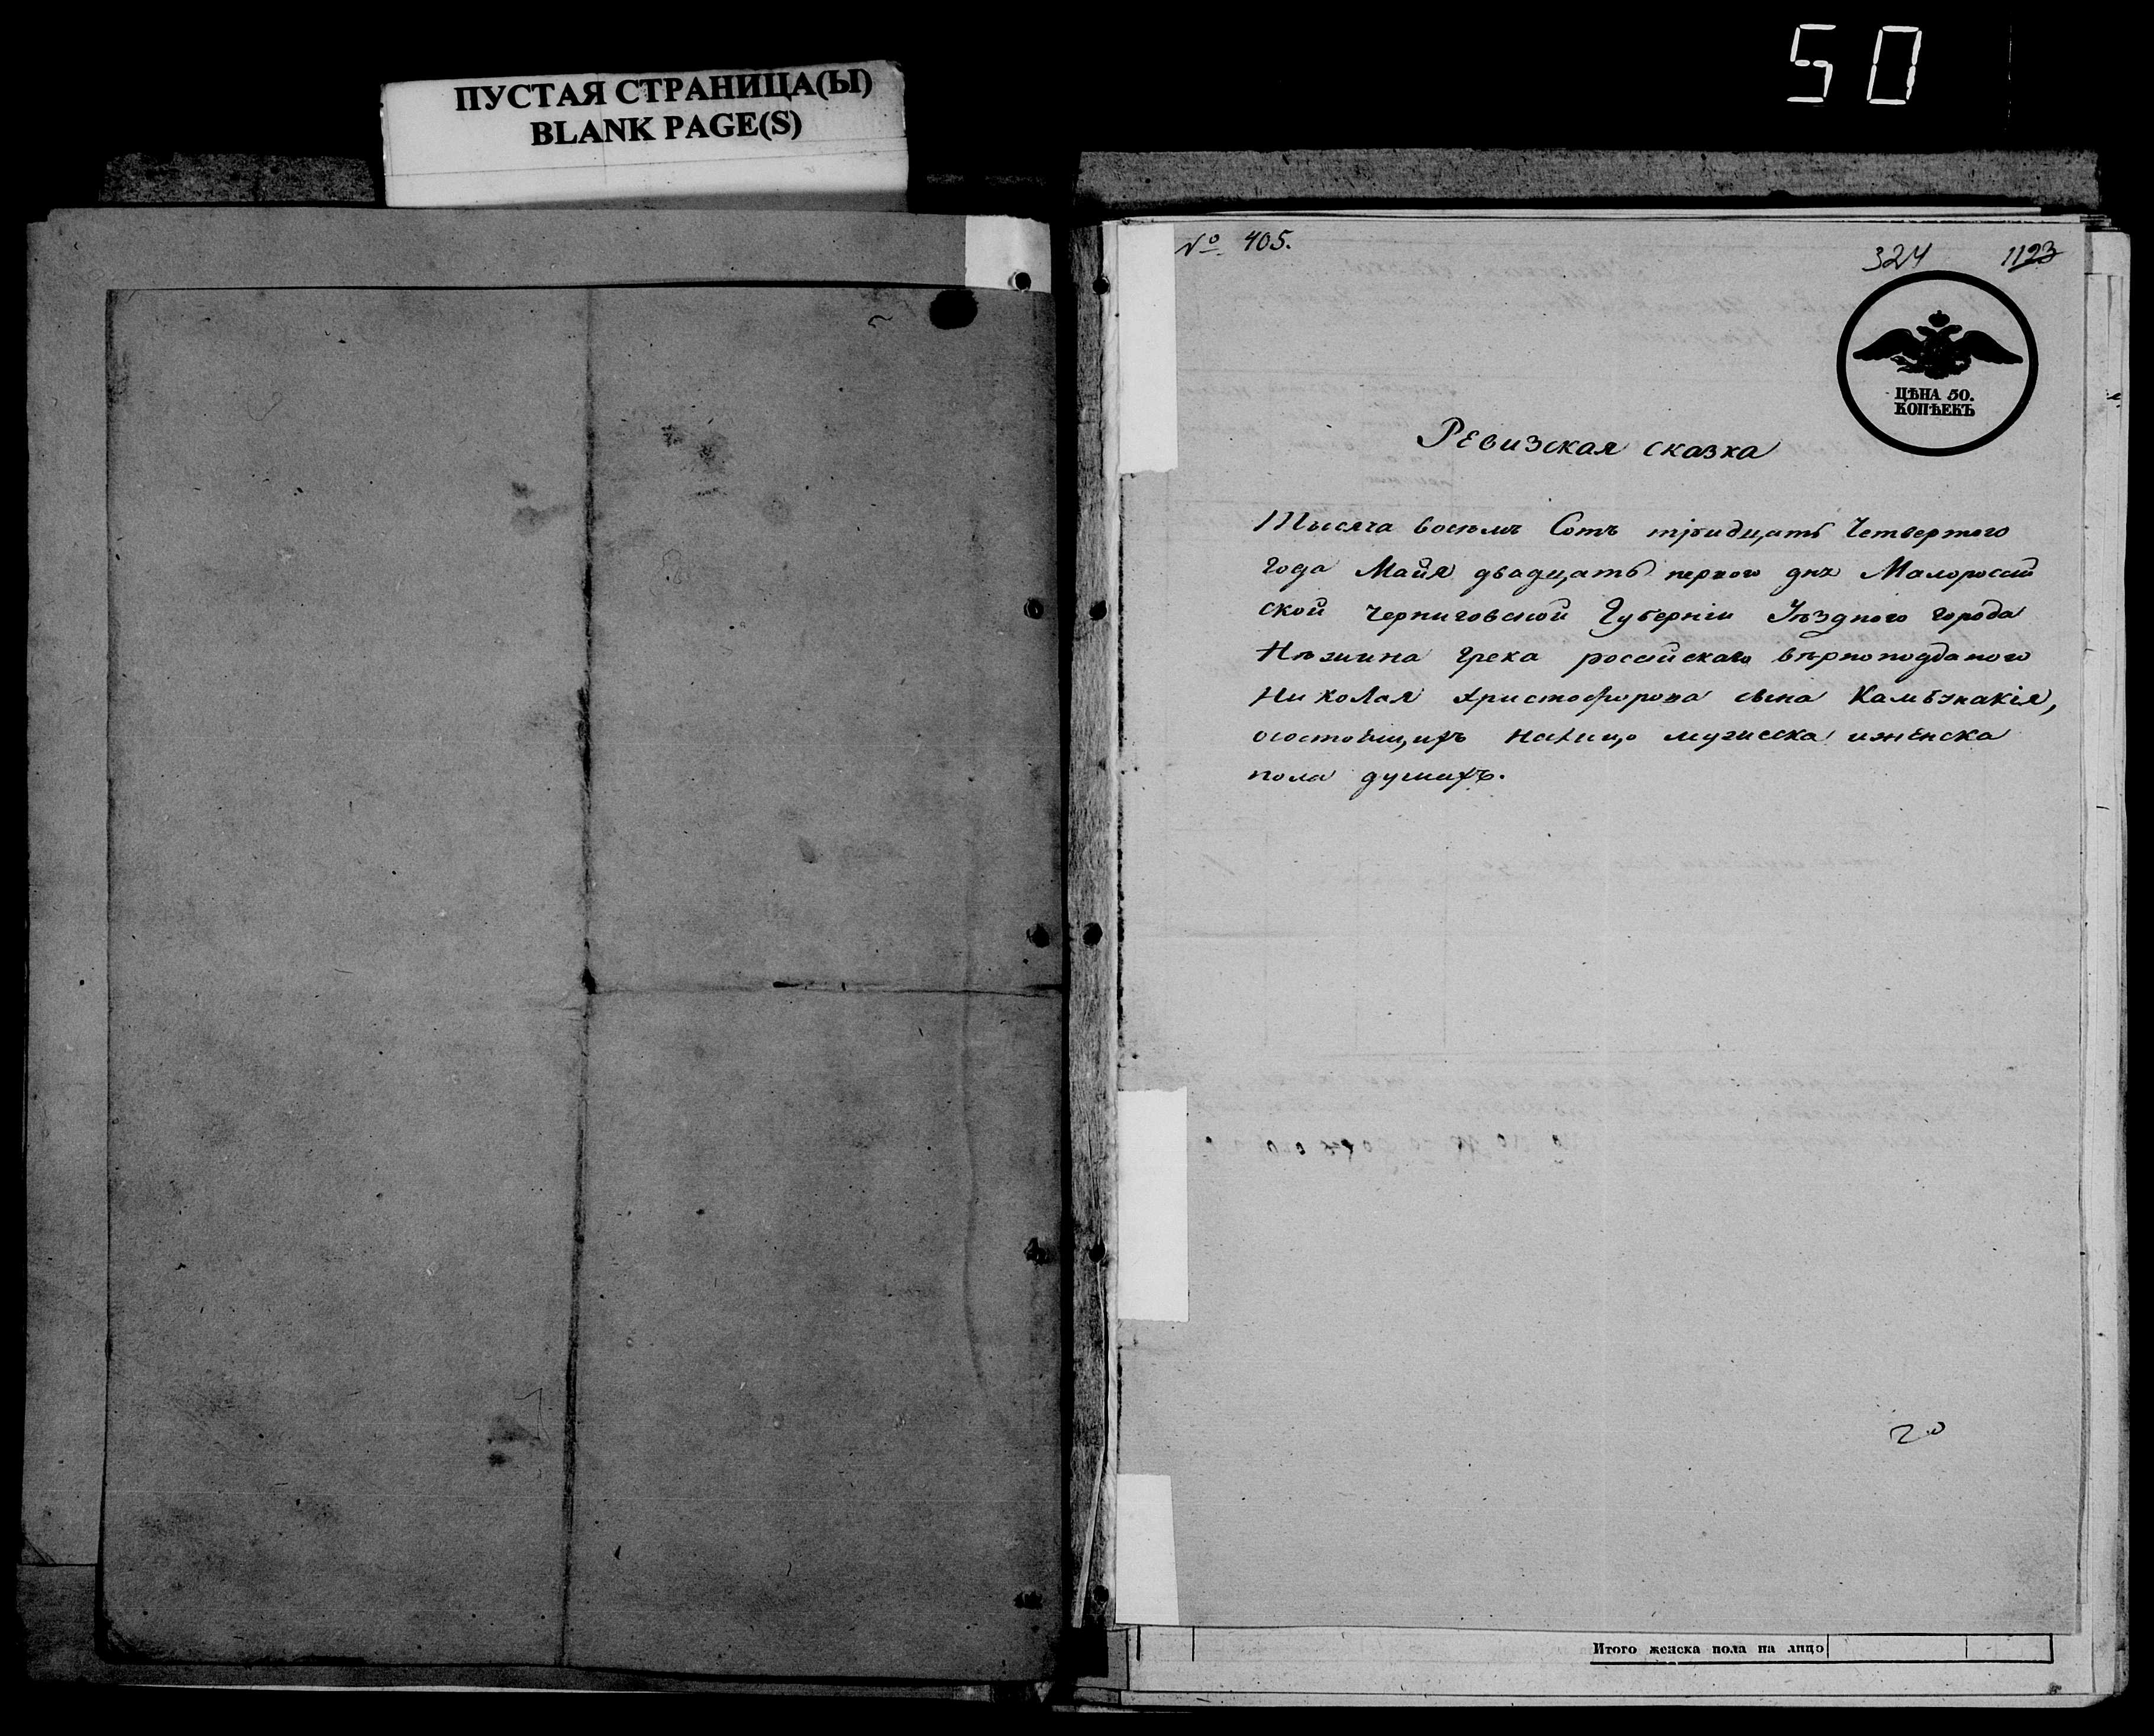 50
ПУСТАЯ СТРАНИЦА(Ы)
BLANK PAGE(S)
№ 405.
324 1123
ЦѢНА 50.
КОПѢЕКЪ
Ревизская сказка
Тысяча восемъ Сотъ тридцать Четвертого
года Майя двадцать первого дня Малоросій
ской Черниговской Губерніи Уѣздного города
Нѣжина грека російскаго вѣрноподданого
Николая Христофорова сына Камбѣнакія,
осостоящихъ налицо мужеска иженска
пола душахъ.
20
Итого женска пола на лицо